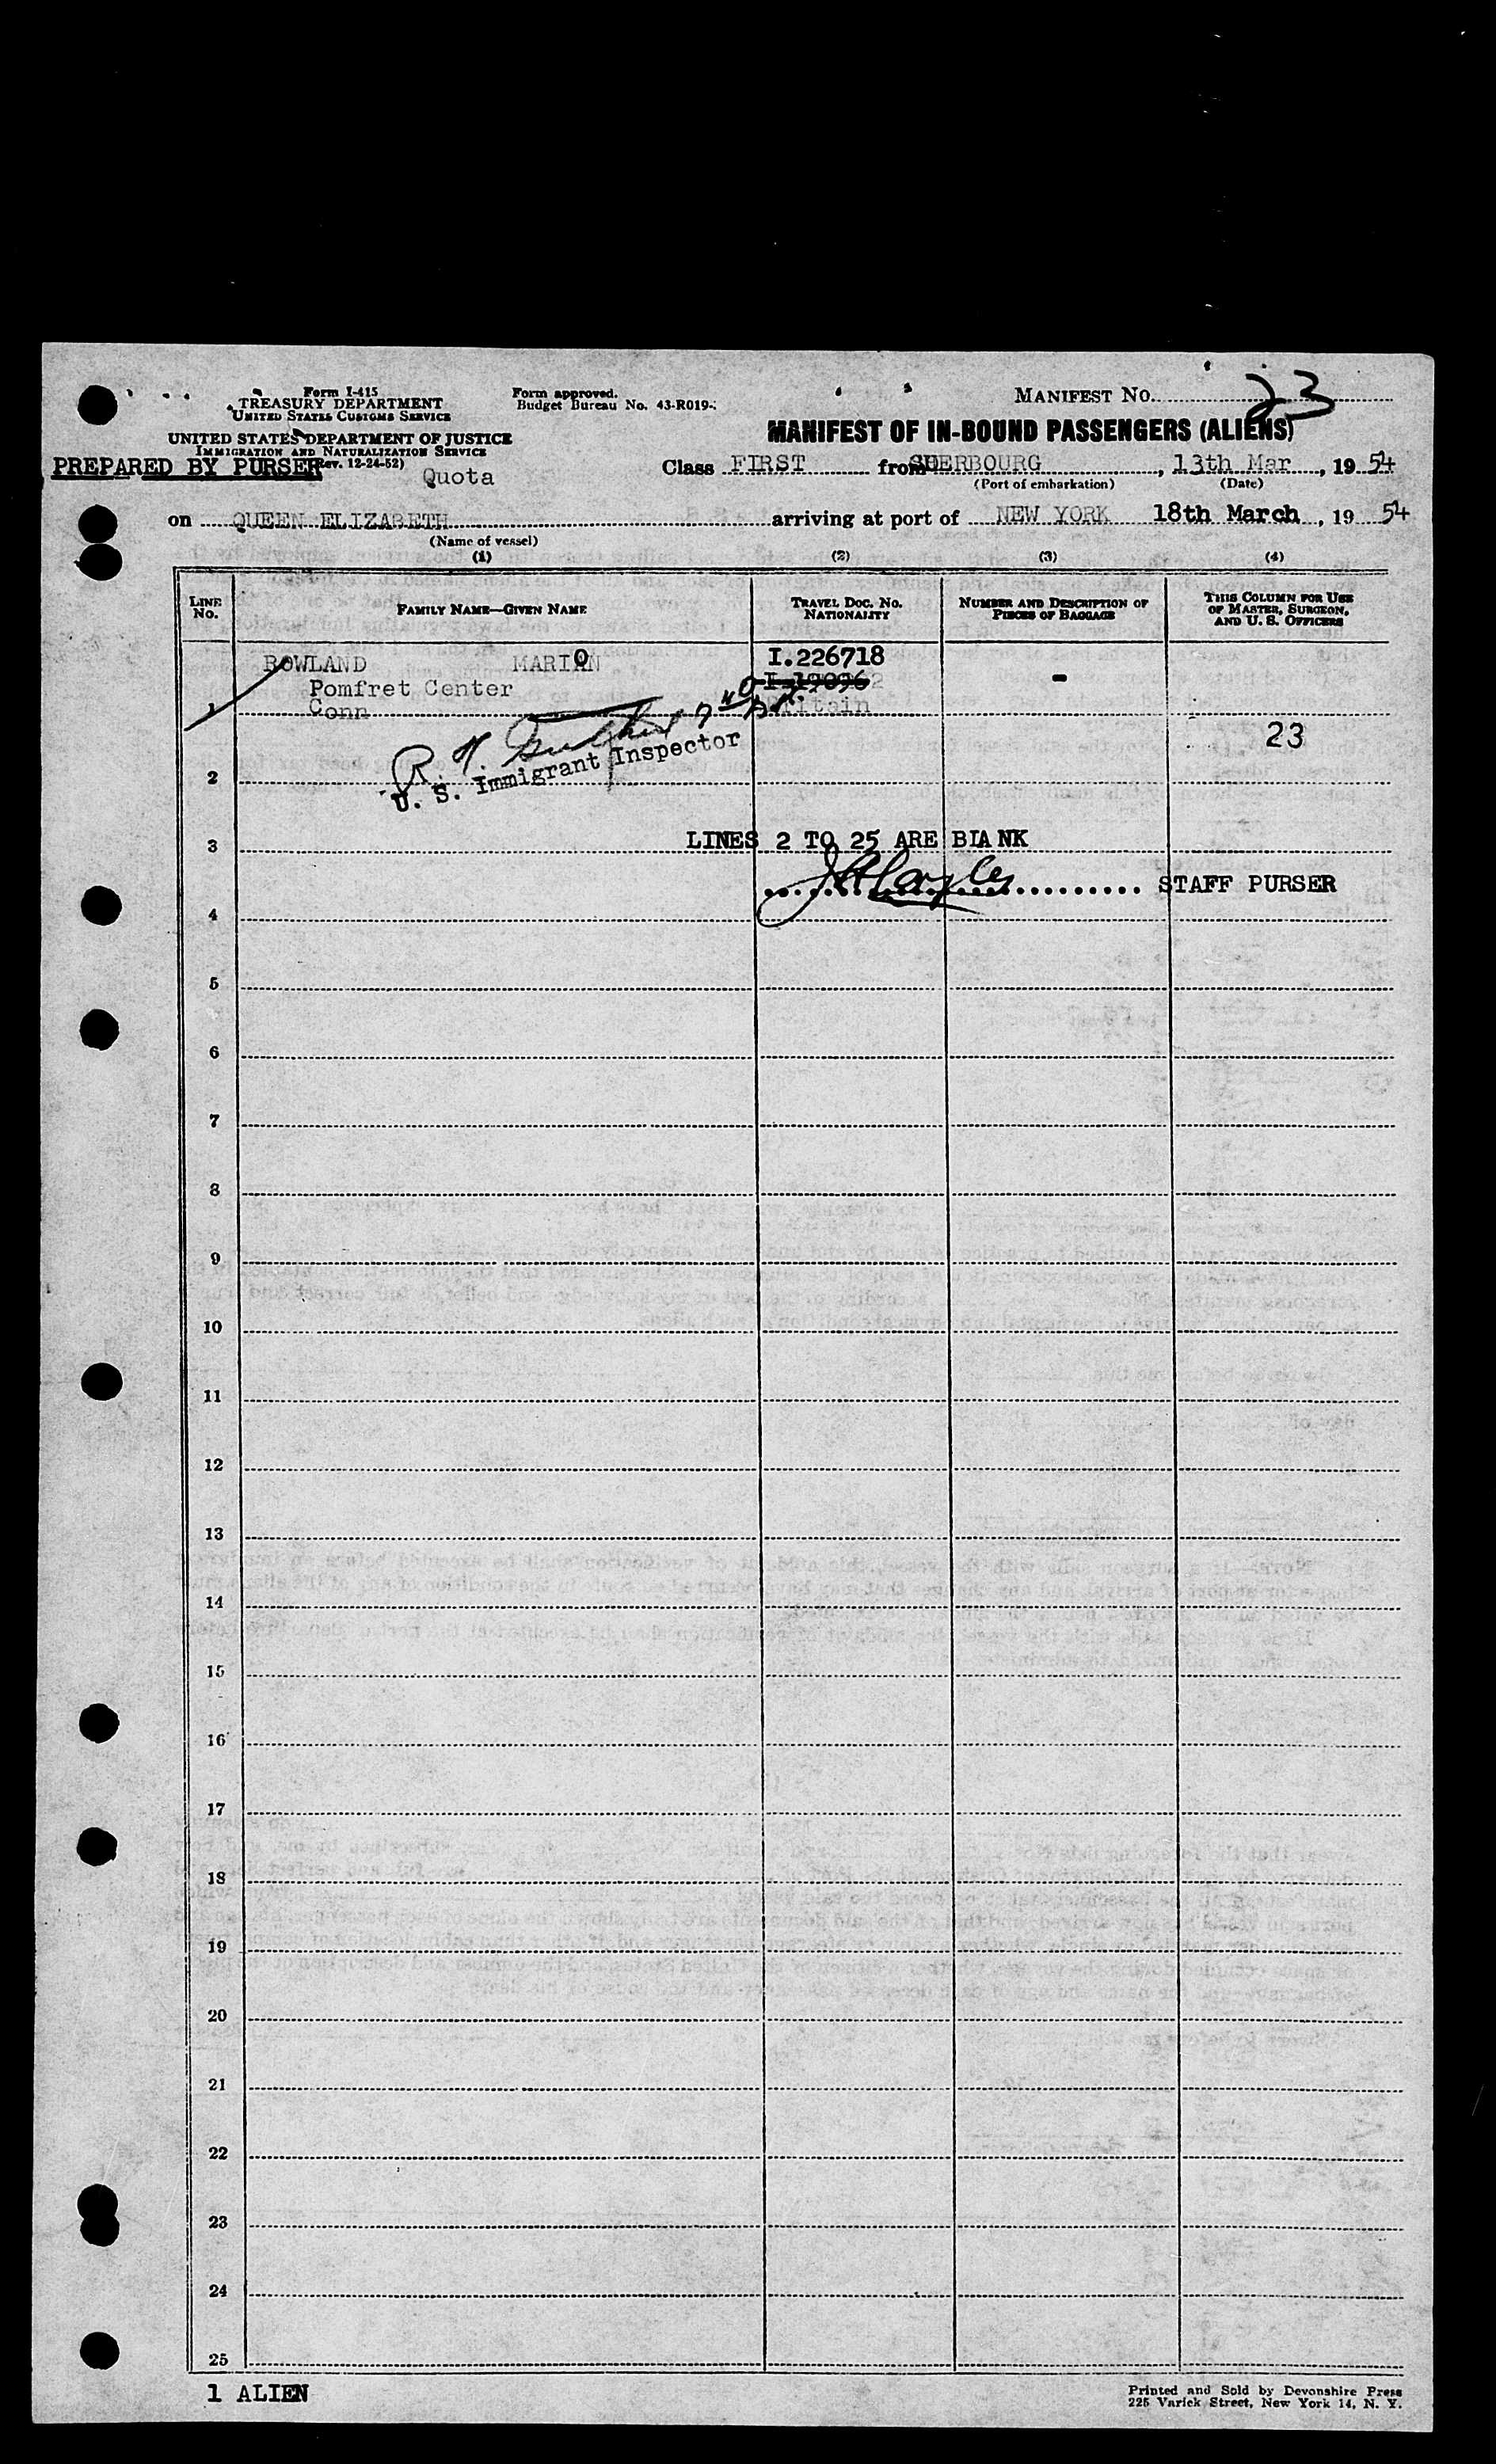 Form I-415
TREASURY DEPARTMENT
UNITED STATES CUSTOMS SERVICE
UNITED STATES DEPARTMENT OF JUSTICE
IMMIGRATION AND NATURALIZATION SERVICE
(Rev. 12-24-52)
PREPARED BY PURSER
Quota
Form approved.
Budget Bureau No. 43-R019-
MANIFEST NO. 23
MANIFEST OF IN-BOUND PASSENGERS (ALIENS)
Class FIRST from CHERBOURG, 13th Mar, 19 54
(Port of embarkation) (Date)
on QUEEN ELIZABETH arriving at port of NEW YORK 18th March, 19 54
(Name of vessel)
(1) (2) (3) (4)
LINE NO.
FAMILY NAME—GIVEN NAME
TRAVEL DOC. NO. NATIONALITY
NUMBER AND DESCRIPTION OF PIECES OF BAGGAGE
THIS COLUMN FOR USE OF MASTER, SURGEON, AND U. S. OFFICERS
ROWLAND MARION I.226718
Pomfret Center -
1 Conn Britain
23
U. S. Immigrant Inspector
2
LINES 2 TO 25 ARE BLANK
3
STAFF PURSER
4
5
6
7
8
9
10
11
12
13
14
15
16
17
18
19
20
21
22
23
24
25
1 ALIEN
Printed and Sold by Devonshire Press
225 Varick Street, New York 14, N. Y.